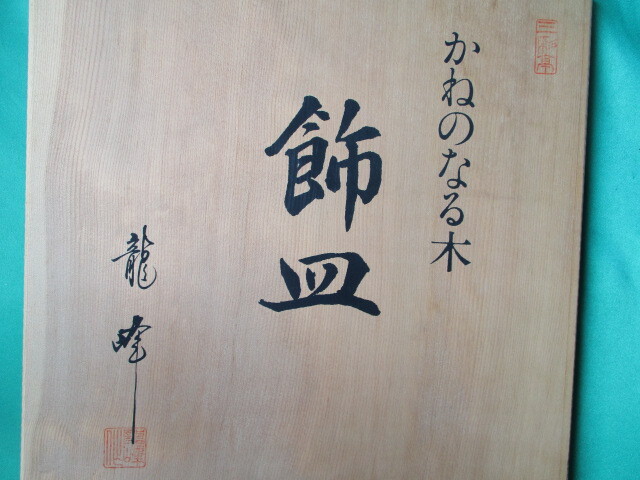 かねのなる木
飾皿
龍峰